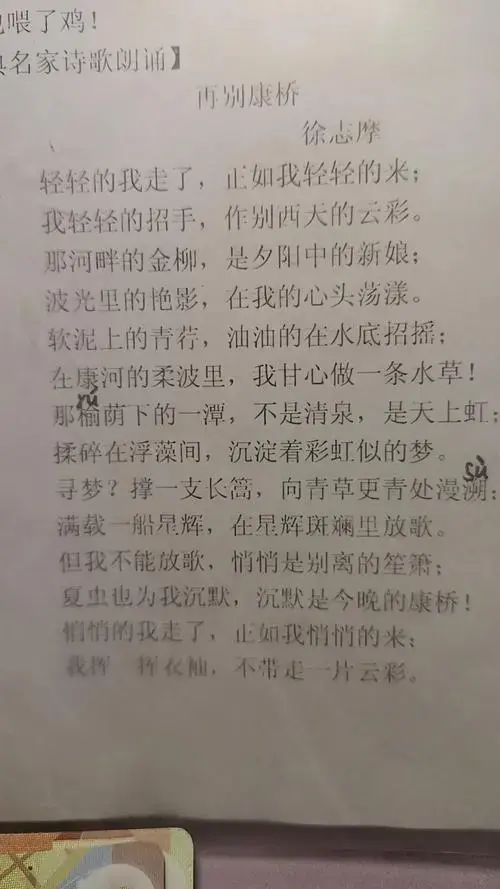 喂了鸡！
名家诗歌朗诵】
再别康桥
徐志摩
轻轻的我走了，正如我轻轻的来；
我轻轻的招手，作别西天的云彩。
那河畔的金柳，是夕阳中的新娘；
波光里的艳影，在我的心头荡漾。
软泥上的青荇，油油的在水底招摇；
在康河的柔波里，我甘心做一条水草！
yú
那榆荫下的一潭，不是清泉，是天上虹；
揉碎在浮藻间，沉淀着彩虹似的梦。
sù
寻梦？撑一支长篙，向青草更青处漫溯；
满载一船星辉，在星辉斑斓里放歌。
但我不能放歌，悄悄是别离的笙箫；
夏虫也为我沉默，沉默是今晚的康桥！
悄悄的我走了，正如我悄悄的来；
我挥一挥衣袖，不带走一片云彩。